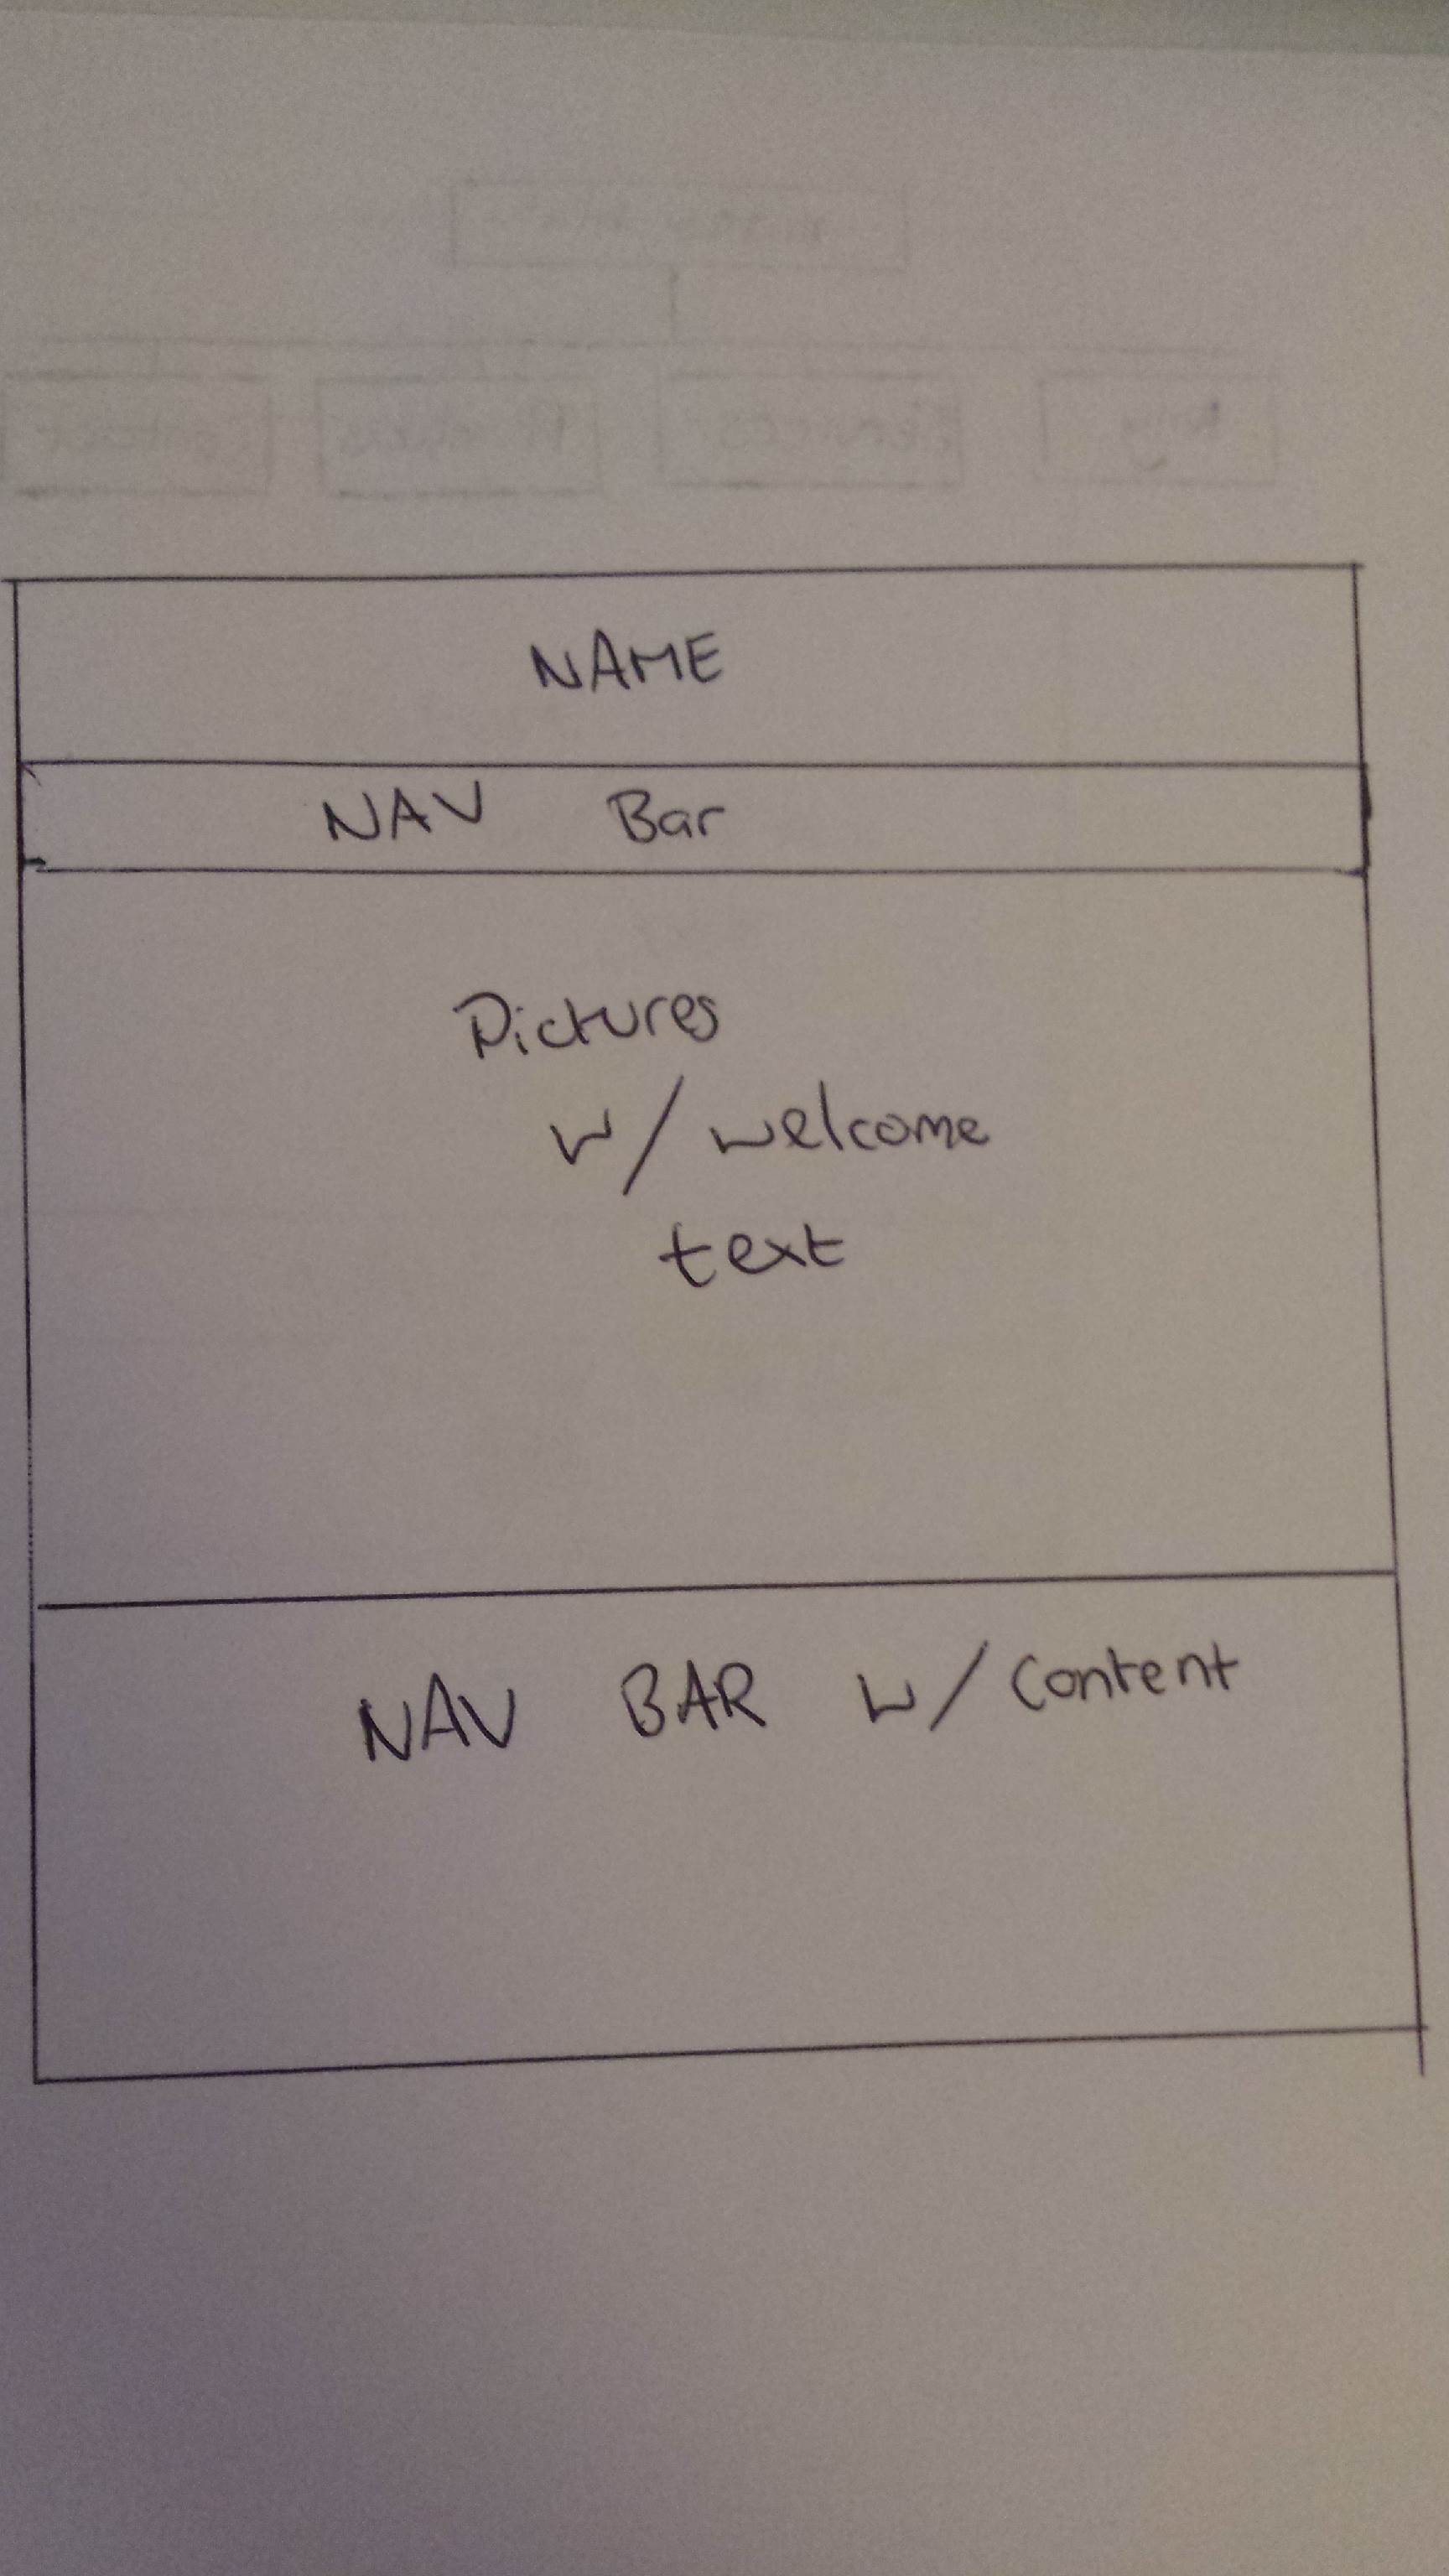 NAME
NAV Bar
Pictures
w/ welcome
text
NAV BAR w/ Content